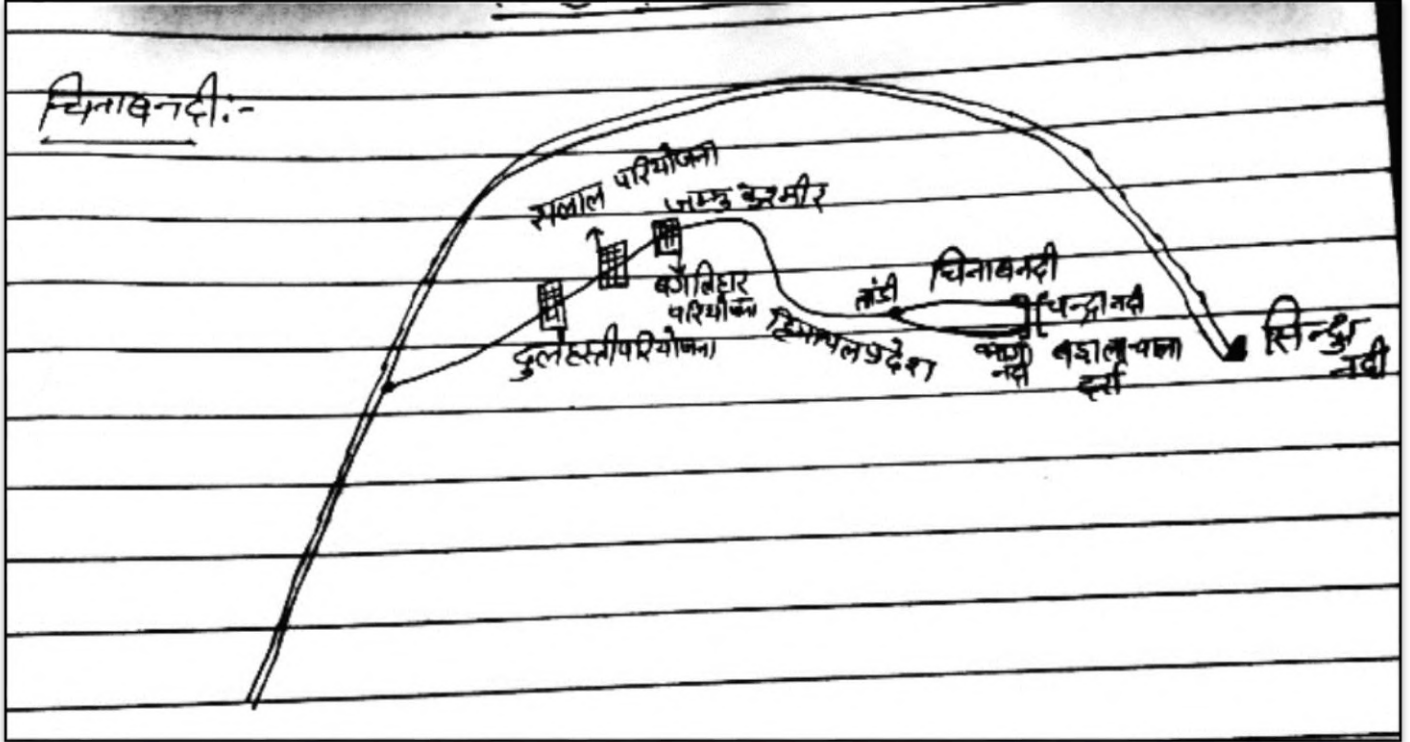 चिनाब नदी:-
सलाल परियोजना
जम्मु कश्मीर
बगलिहार
परियोजना
दुलहस्ती परियोजना
हिमाचल प्रदेश
तांडी
चिनाब नदी
चन्द्रा नदी
भागा
नदी
बड़ालाचाला
दर्रा
सिन्धु
नदी